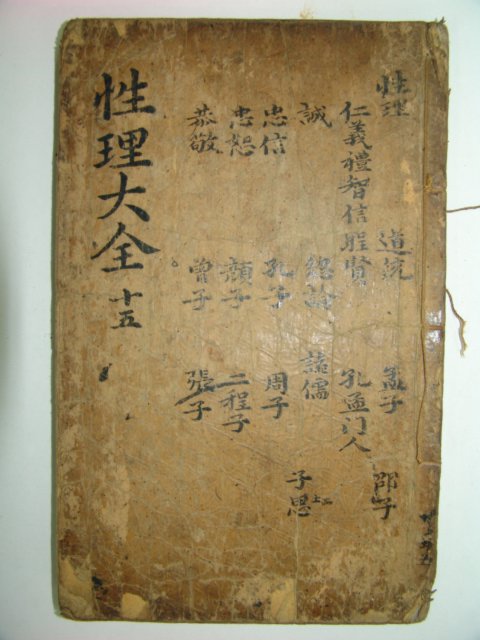 性理 道統 孟子 邵子
仁義禮智信 聖賢 孔孟门人
誠 總論 諸儒
子思
忠信 孔子 周子
忠恕 顔子 二程子
恭敬 曾子 張子
性理大全 十五